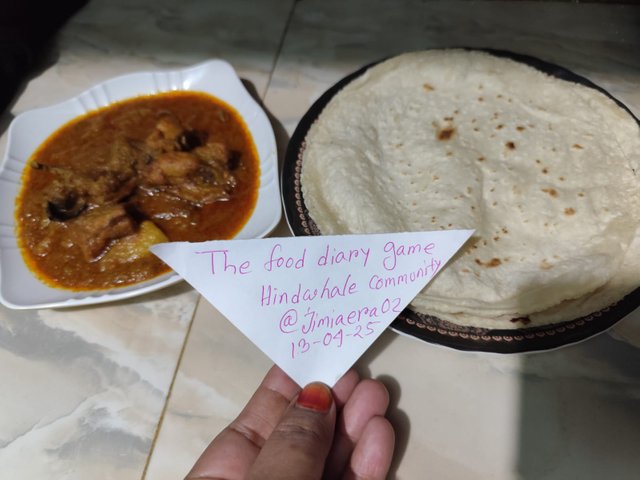 The food diary game
Hindwhale Community
@jimiaera02
13-04-25